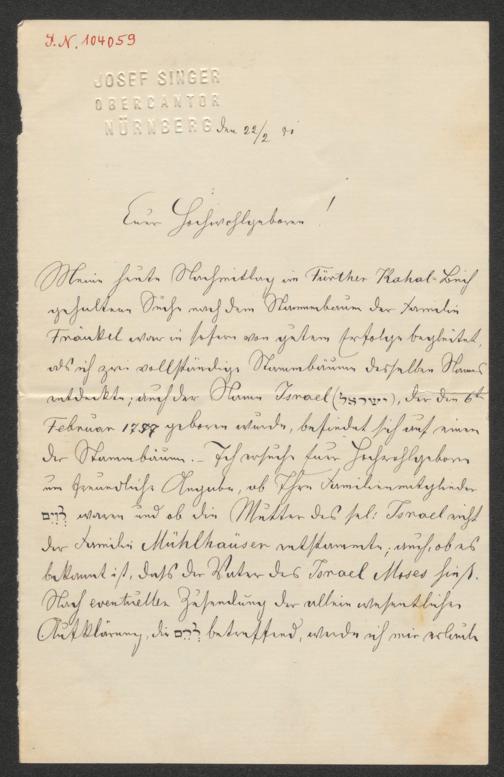 J.N. 104059
JOSEF SINGER
OBERCANTOR
NÜRNBERG den 22/2
Euer Hochwohlgeboren!
Meine heute Nachmittag im Fürther Kahal-Buch
gehaltene Suche nach dem Stammbaum der Familie
Fränkel war in sofern von gutem Erfolge begleitet,
als ich zwei vollständige Stammbäume desselben Namens
entdeckte; auch der Name Israel (ישראל), der den 6ten
Februar geboren wurde, befindet sich auf einem
der Stammbäume. – Ich ersuche Euer Hochwohlgeboren
um freundliche Angabe, ob Ihre Familienmitglieder
לְוִיִם waren und ob die Mutter des sel: Israel nicht
der Familie Mühlhäuser entstammte; auch, ob es
bekannt ist, daß der Vater des Israel Moses hieß.
Nach eventueller Zusendung der allein wesentlichen
Aufklärung, die לְוִיִם betreffend, werde ich mir erlauben